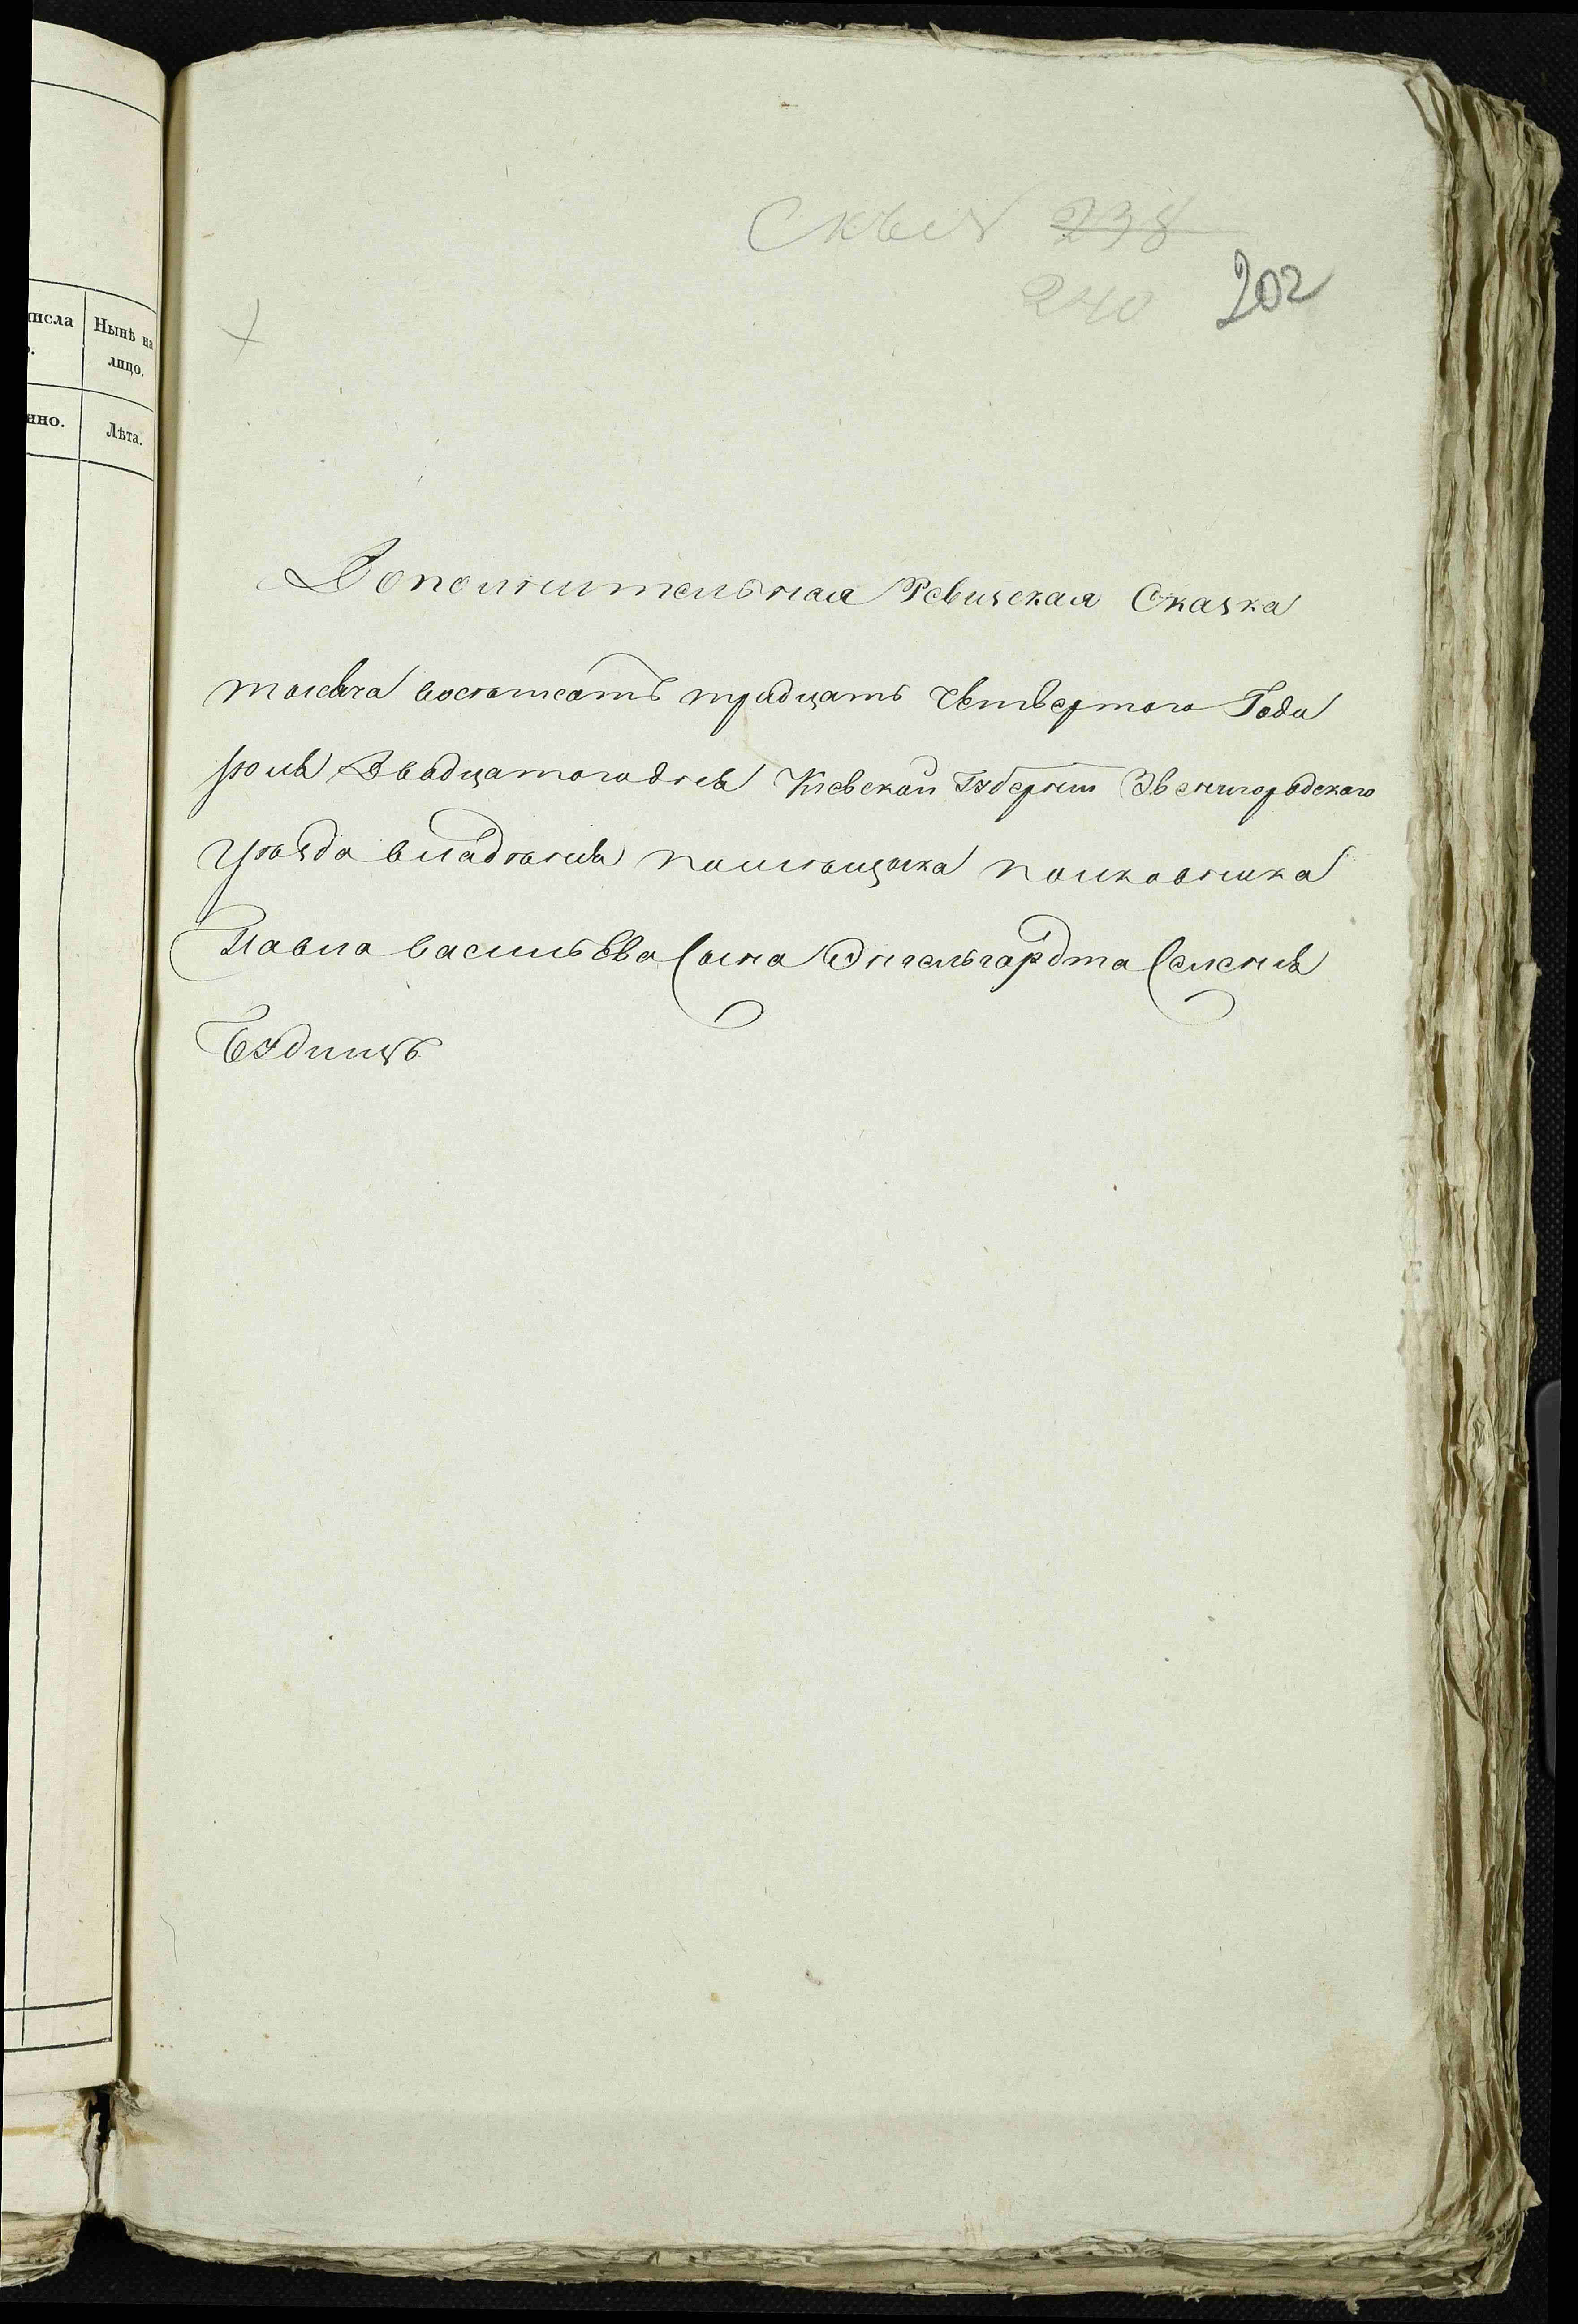 238
240 202
исла Нынѣ на
лицо.
нно. Лѣта.
Дополнительная Ревизская Сказка
тысяча восемьсотъ тридцать Четвертого Года
Юля Двадцатого дня Кіевской Губерніи Звенигородского
Уѣзда владѣнія помѣщыка полковника
Павла васильЕва Сына Энгельгардта Селенія
Будищъ